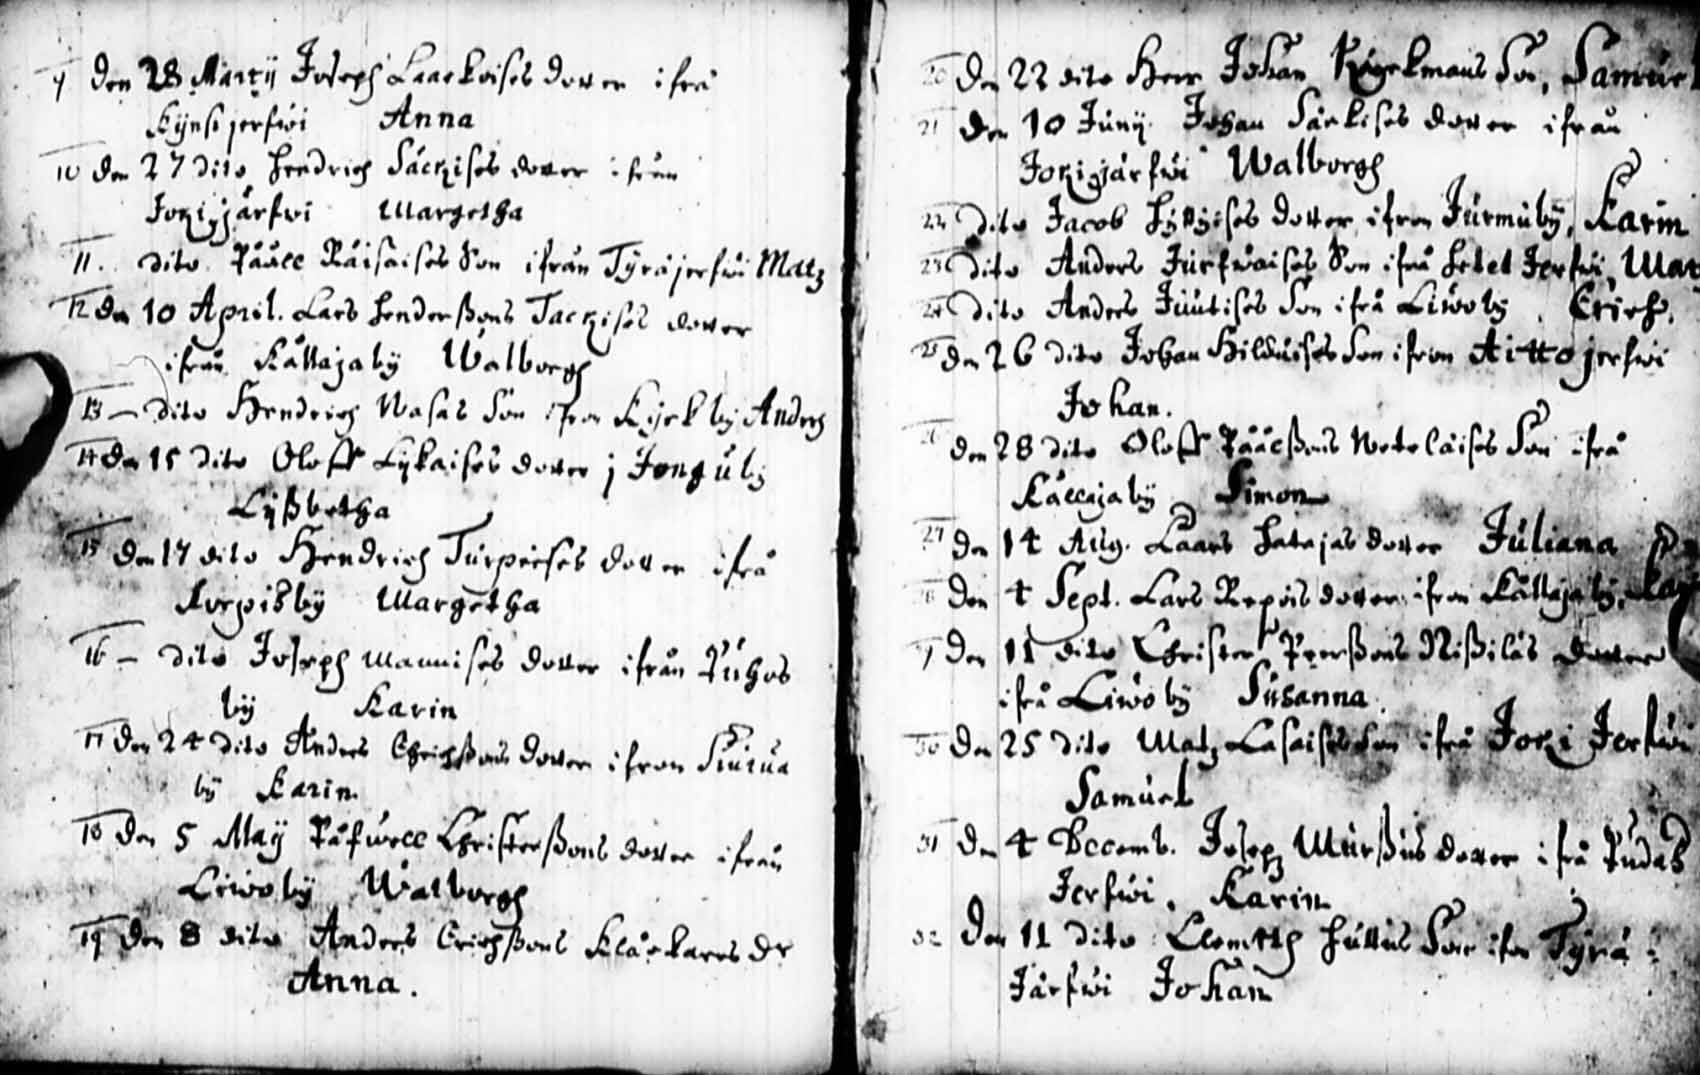 9 den 28 Martij Joseph Laackoises dotter ifrå
Kynsijerfwi Anna
10 den 27 dito Hendrich Säckises dotter ifrån
Jokijärfwi Margetha
11. dito Pååll Räisäises Son ifrån Tyräjerfwi Matz
12 den 10 April. Lars Henderßons Tackises dotter
ifrån Kållajaby Walborgh
13 – dito Hendrich Wasas Son ifron Kyrkby Anders
14 den 15 dito Oloff Lykaises dotter j Jonguby
Lyßbetha
15 den 17 dito Hendrich Turpeises dotter ifrå
Korpisby Margetha
16 – dito Joseph Mannises dotter ifrån Puhos
by Karin
17 den 24 dito Anders Chrichßons dotter ifron Siurua
by Karin
18 den 5 Maÿ Påfwell Christerßons dotter ifrån
Liwoby Walborgh
19 den 8 dito Anders Erichßons Klåckares dr
Anna.
20 den 22 dito Herr Johan Son, Samuel
21 den 10 Junij Johan Särkises dotter ifrån
Jokijärfwi Walborgh
22 dito Jacob dotter ifron Jurmuby, Karin
23 dito Anders Jurfwaises Son ifrå Hetet Jerfwi, Mat
24 dito Anders Juutises Son ifrå Liwoby, Erich.
25 den 26 dito Johan Hilduises Son ifron Aittojerfwi
Johan.
26 den 28 dito Oloff Påålßons Weteläises Son ifrå
Kållajaby Simon
27 den 14 Aug. Laars Hatajas dotter Juliana
28 den 4 Sept. Lars Repois dotter ifron Kållajaby, Kari
9 den 11 dito Christer Peerßons Nißiläs dotter
ifrå Liwoby Susanna.
30 den 25 dito Matz Lasaises Son ifrå Joki Jerfwi
Samuel
31 den 4 Decemb. Joseph Murßus dotter ifrå Pudas
Jerfwi. Karin
32 den 11 dito Clemeth Huttus Son ifrå Tyrä:
Järfwi Johan